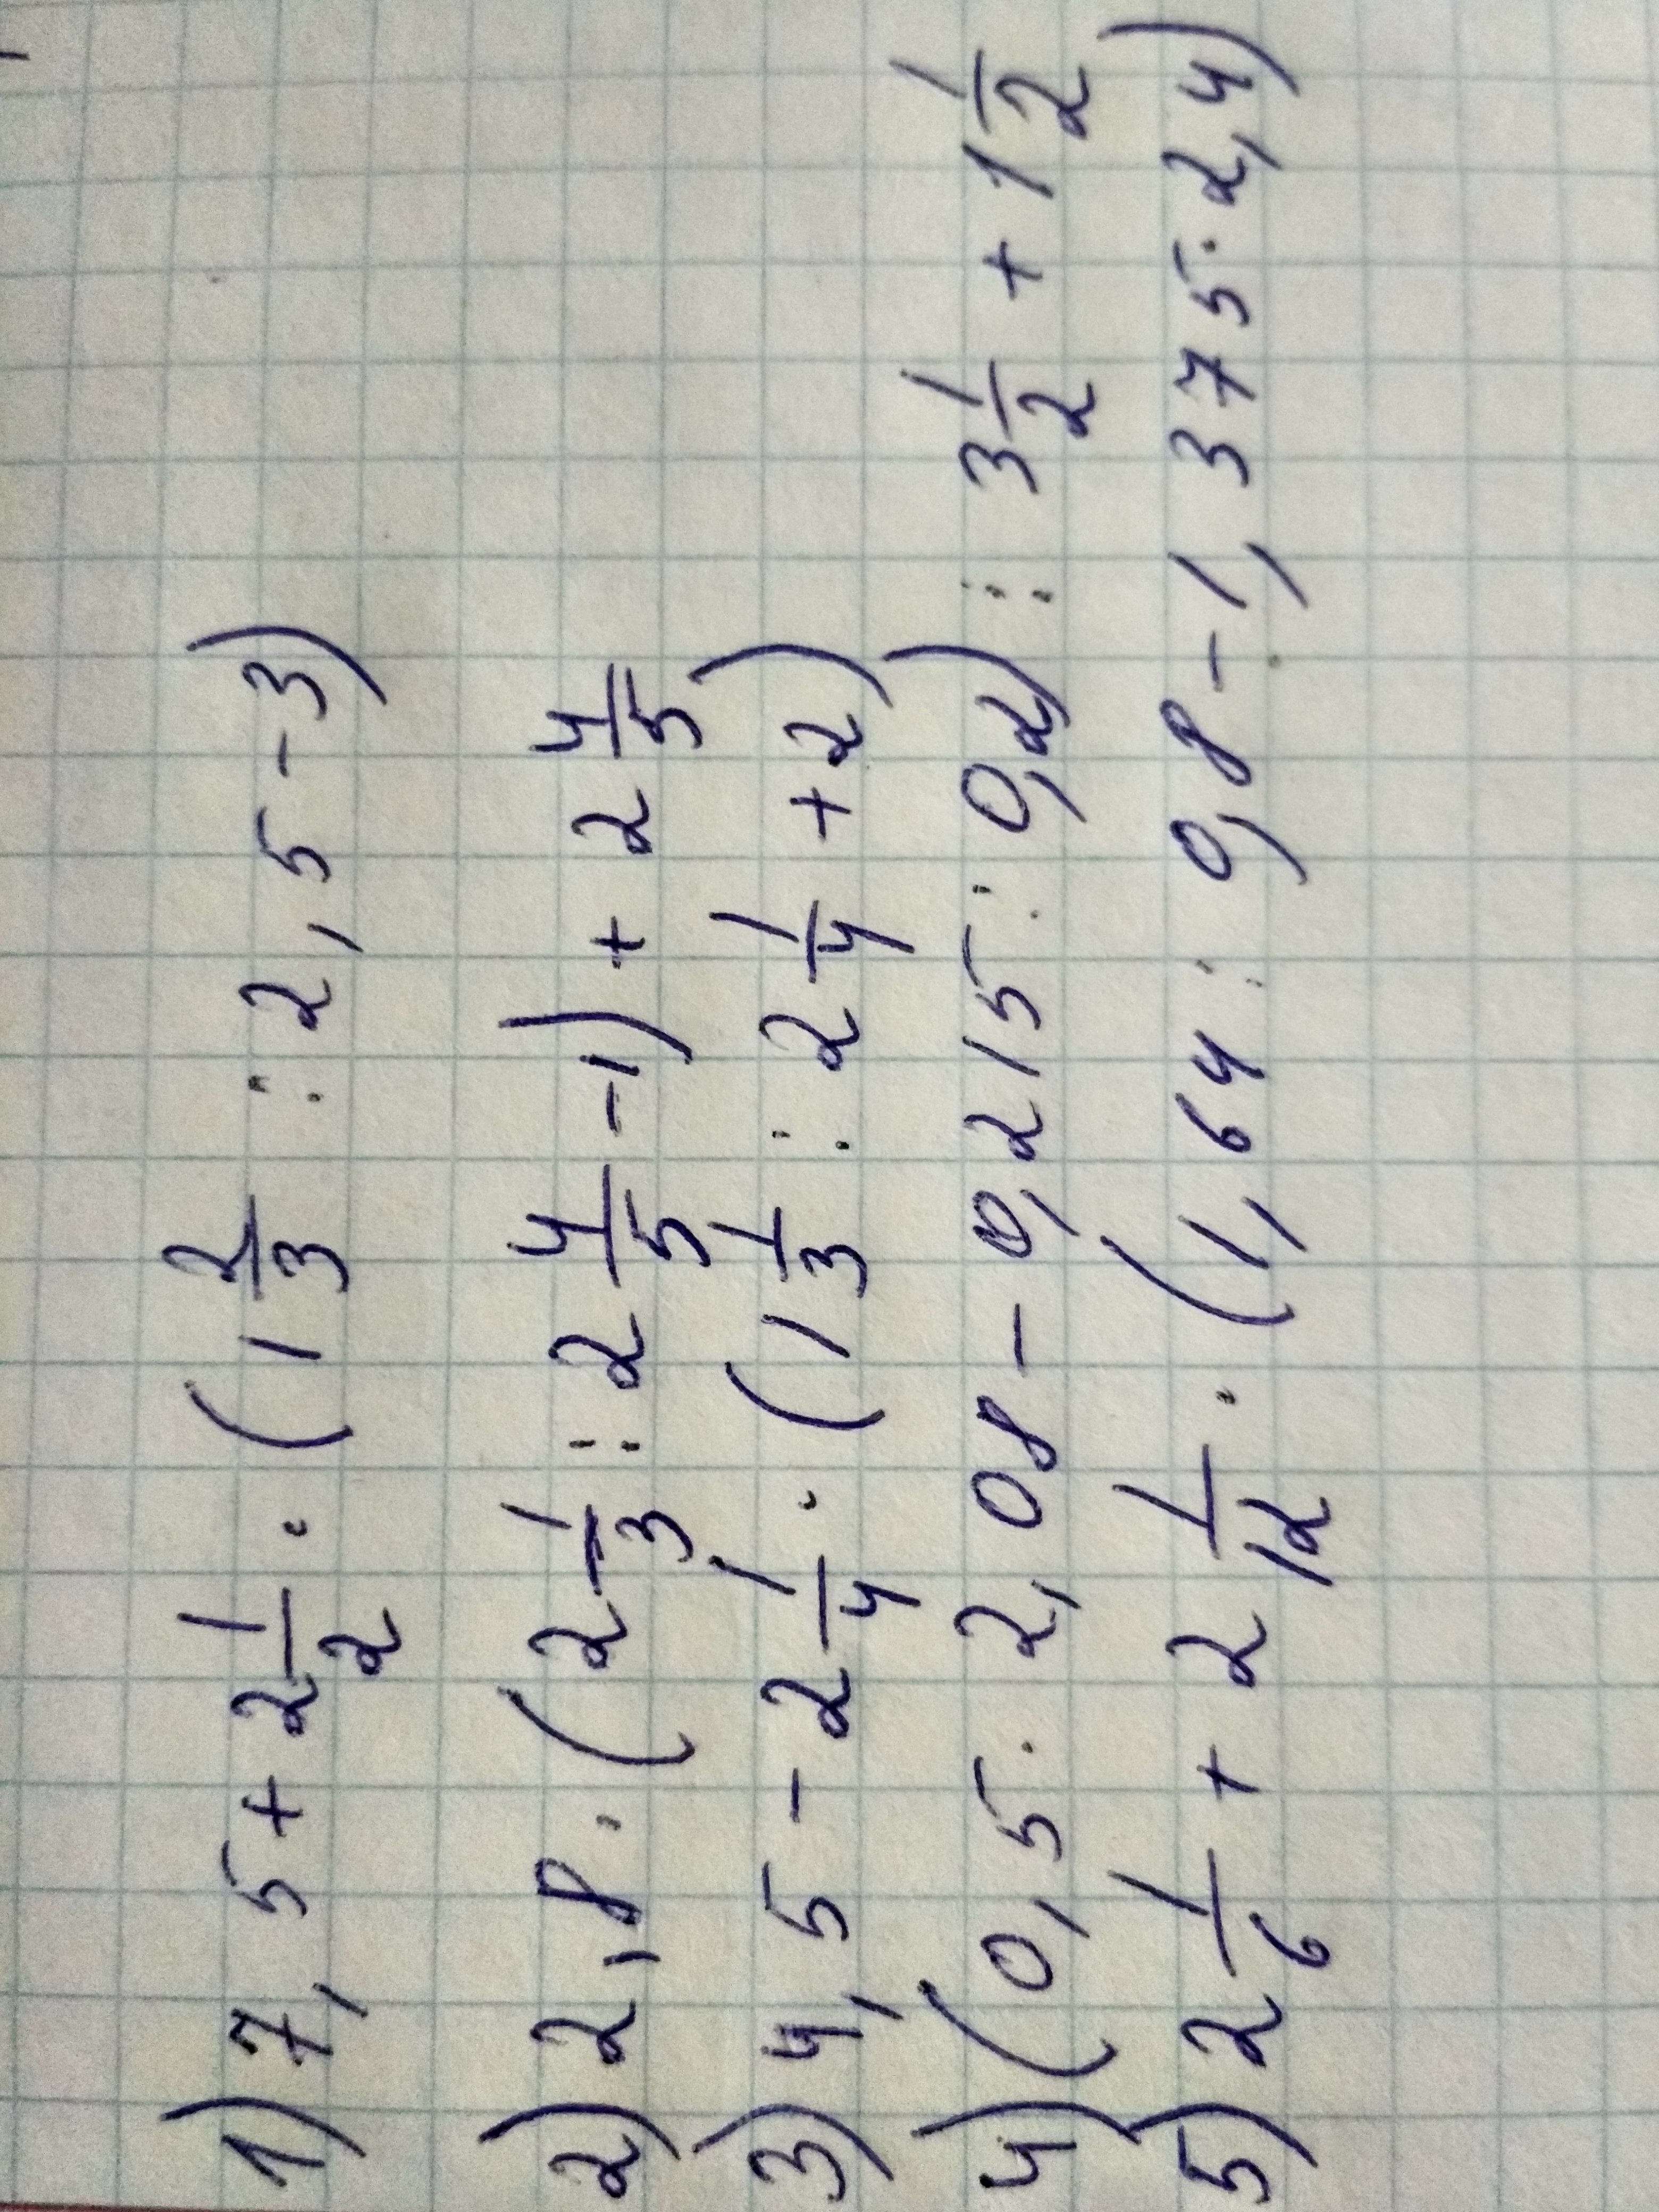 1) 7,5 + 2 1/2 · (1 2/3 : 2,5 - 3)
2) 2,8 · (2 1/3 : 2 4/5 - 1) + 2 4/5
3) 4,5 - 2 1/4 · (1 1/3 : 2 1/4 + 2)
4) (0,5 · 2,08 - 0,215 : 0,2) : 3 1/2 + 1 1/2
5) 2 1/6 + 2 1/12 · (1,64 : 0,8 - 1,375 · 2,4)